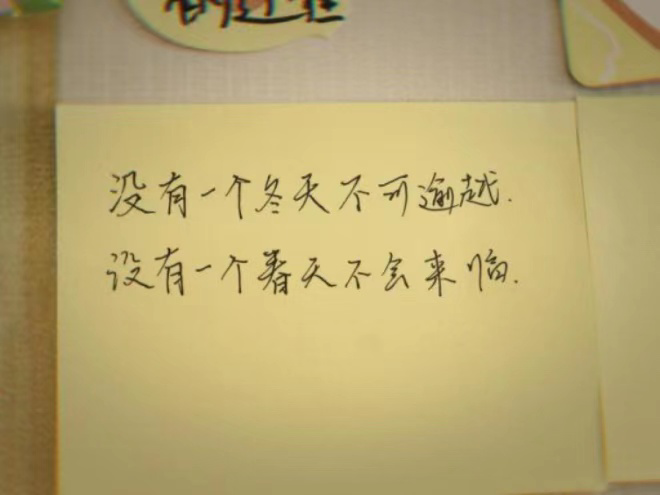 没有一个冬天不可逾越.
没有一个春天不会来临.